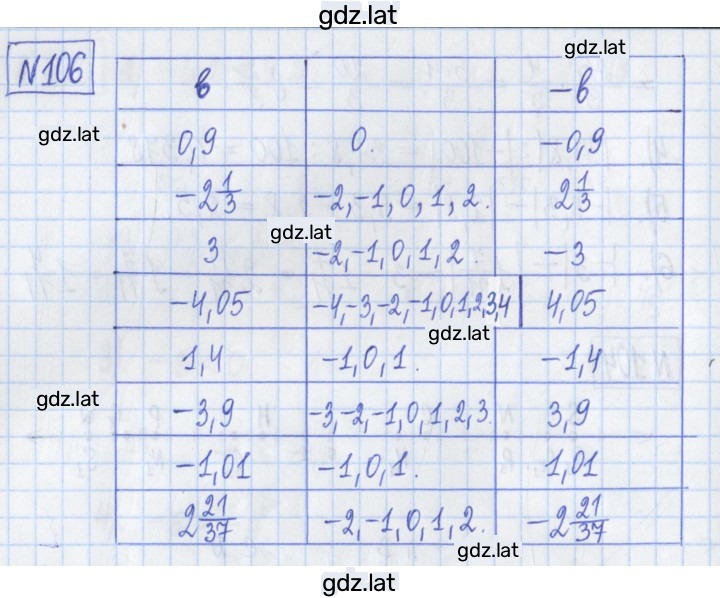 gdz.lat
N106
в −в
gdz.lat
gdz.lat
0,9 0. −0,9
−2 1/3 −2,−1,0,1,2. 2 1/3
gdz.lat
3 −2,−1,0,1,2. −3
−4,05 −4,−3,−2,−1,0,1,2,3,4 4,05
gdz.lat
1,4 −1,0,1. −1,4
gdz.lat
−3,9 −3,−2,−1,0,1,2,3. 3,9
−1,01 −1,0,1. 1,01
2 21/37 −2,−1,0,1,2. −2 21/37
gdz.lat
gdz.lat